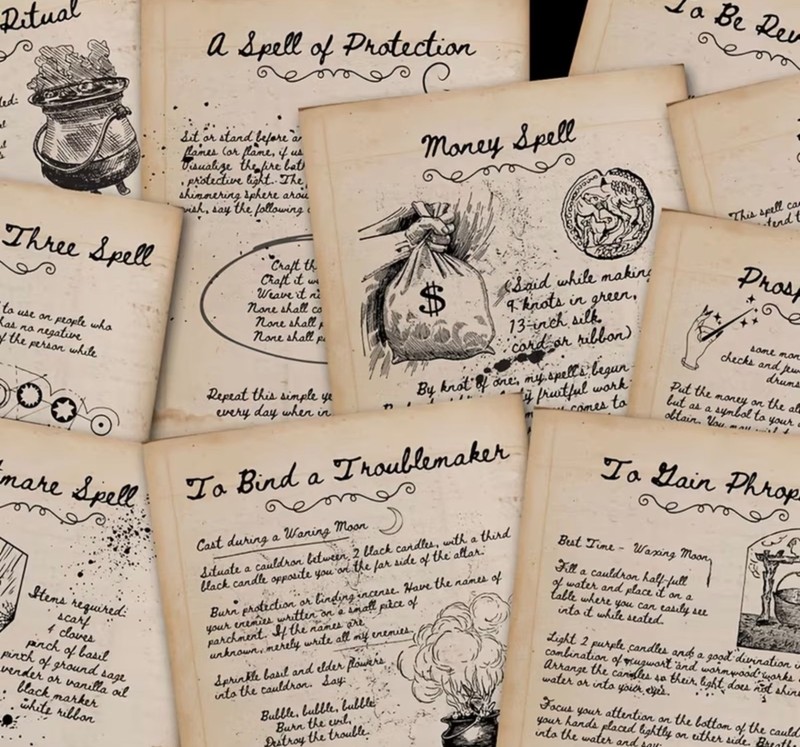 Ritual
A Spell of Protection
Sit or stand before
flames (or flame, if
Visualize the fire
, protective light. The
shimmering sphere
wish, say the following
Craft
Craft it
Weave it
None shall
None shall
None shall
Repeat this simple
every day when in
Money Spell
(Said while making
9 knots in green,
13-inch silk
cord or ribbon)
By knot of one, my spell's begun
fruitful work
comes to
To Be
This spell
Three Spell
to use on people who
has no negative
of the person while
some
checks and
drums
Put the money on the
but as a symbol to your
obtain. You may
Spell
Items required:
scarf
4 cloves
pinch of basil
pinch of ground sage
or vanilla oil
black marker
white ribbon
To Bind a Troublemaker
Cast during a Waning Moon
Situate a cauldron between 2 black candles, with a third
black candle opposite you on the far side of the altar.
Burn protection or binding incense. Have the names of
your enemies written on a small piece of
parchment. If the names are
unknown, merely write all my enemies.
Sprinkle basil and elder flowers
into the cauldron. Say:
Bubble, bubble, bubble
Burn the evil,
Destroy the trouble.
To Gain Phrop
Best Time - Waxing Moon
Fill a cauldron half-full
of water and place it on a
table where you can easily see
into it while seated.
Light 2 purple candles and a good divination
combination of mugwort and wormwood works
Arrange the candles so their light does not
water or into your eyes.
Focus your attention on the bottom of the
your hands placed lightly on either side.
into the water and say: